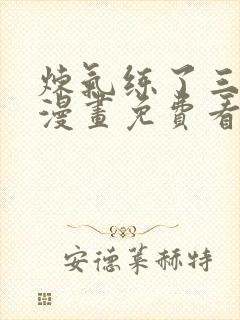 炼氣练了三
漫畫免費看
安德莱赫特